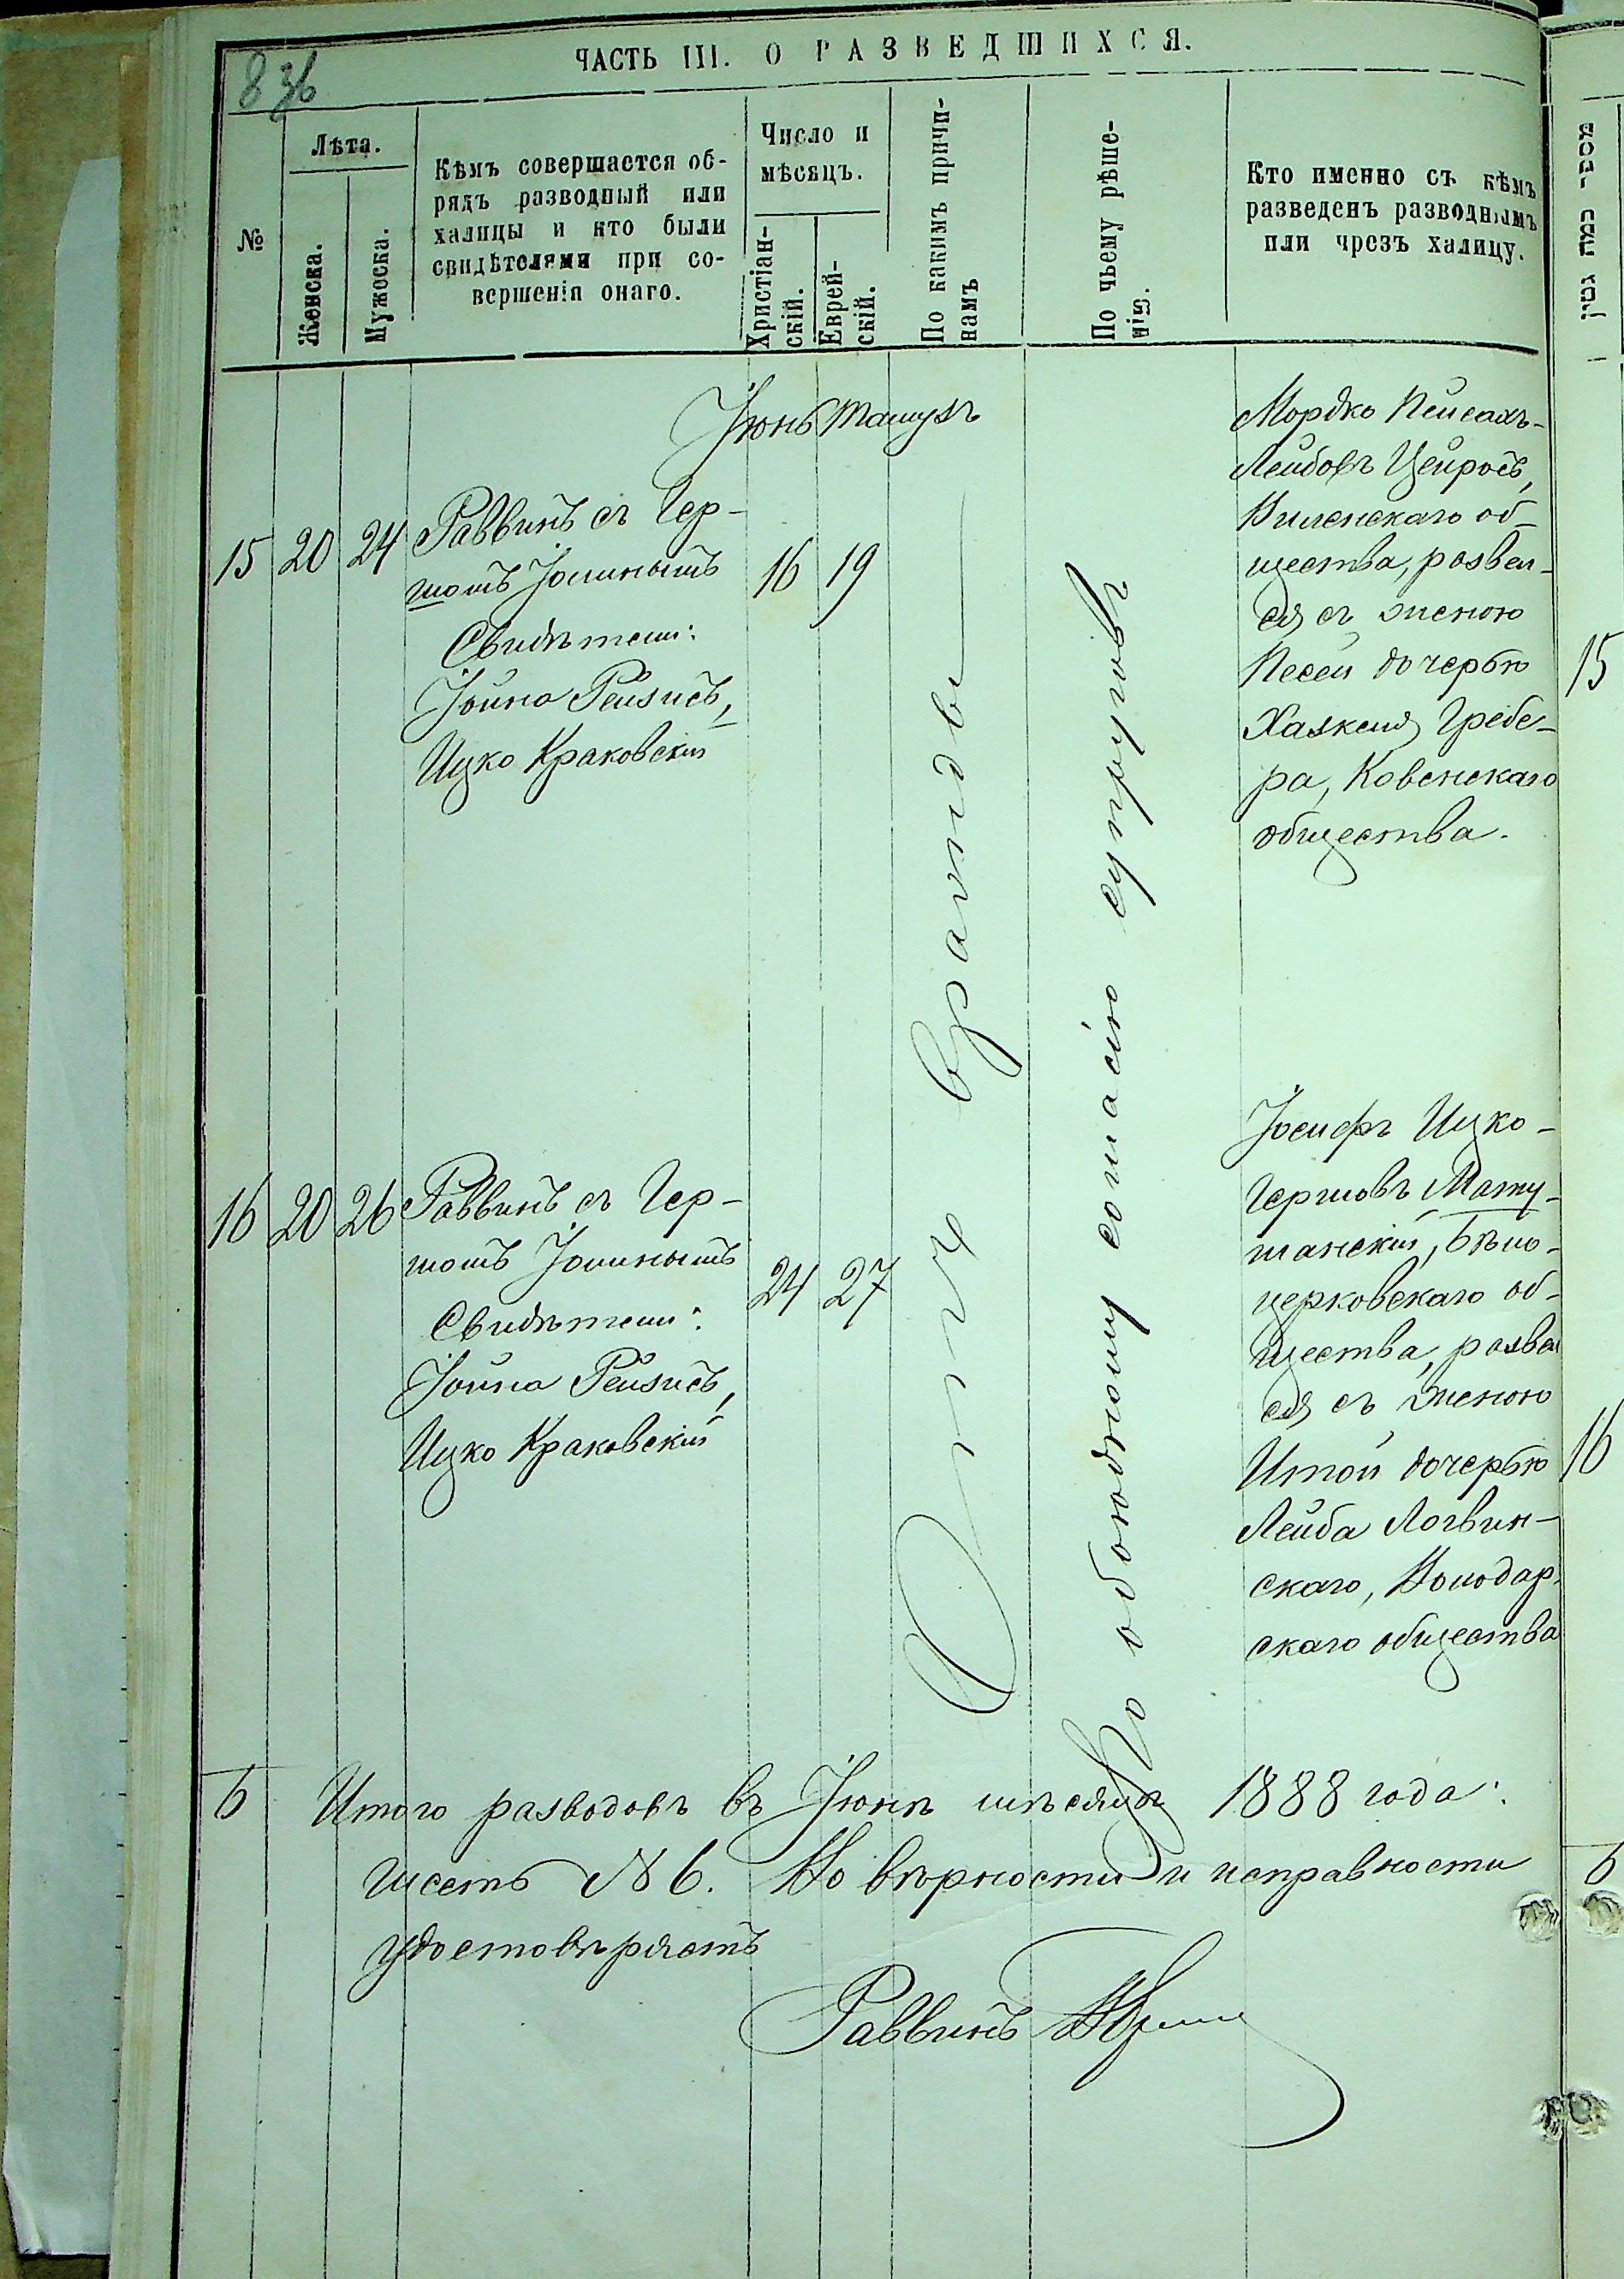 ЧАСТЬ III. О РАЗВЕДШИХСЯ.
836
№
Лѣта.
Женска.
Мужеска.
Кѣмъ совершается об-
рядъ разводный или
халицы и кто были
свидѣтелями при со-
вершеніи онаго.
Число и
мѣсяцъ.
Христіан-
скій.
Еврей-
скій.
По какимъ причи-
намъ
По чьему рѣше-
нію.
Кто именно съ кѣмъ
разведенъ разводнымъ
или чрезъ халицу.
Іюнь Тамузъ
15 20 24
Раввинъ съ Гер-
шомъ
Свидѣтели:
Іойна Рейзисъ,
Ицко Краковскій
16 19
Мордко Пейсахъ-
Лейбовъ Цейровъ,
Виленскаго об-
щества, развел-
ся съ женою
Песей дочерью
Хаскеля Гребе-
ра, Ковенскаго
общества.
Отъ вражды
По обоюдному согласію супруговъ
16 20 26
Раввинъ съ Гер-
шомъ
Свидѣтели:
Іойна Рейзисъ,
Ицко Краковскій
24 27
Іосифъ Ицко-
Гершовъ Мату-
шанскій, Бѣло-
церковскаго об-
щества, развел
ся съ женою
Итой дочерью
Лейба Логвин-
скаго, Володар-
скаго общества
6 Итого разводовъ въ Іюнѣ мѣсяцѣ 1888 года:
шесть № 6. Во вѣрности и исправности
удостовѣряетъ
Раввинъ
מספר כמה גטין
15
16
6